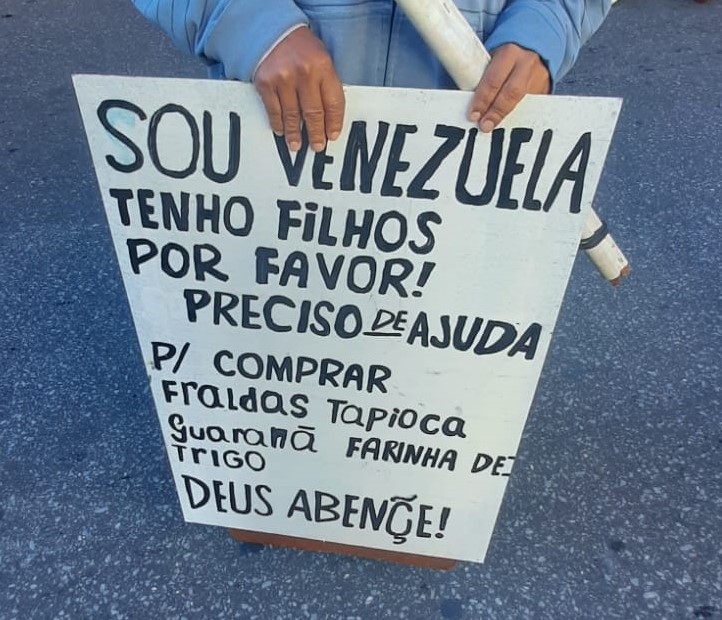 SOU VENEZUELA
TENHO FiLHOS
POR FAVOR!
PRECISO DE AJUDA
P/ COMPRAR
Fraldas Tapioca
guaranā FARINHA DE
TriGO
DEUS ABENÇ̃E!